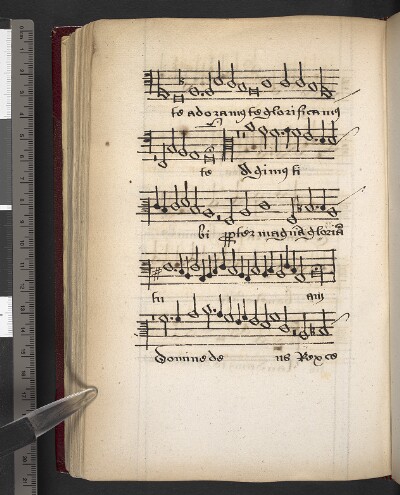 te adoramus te glorificamus
te Agimus ti
bi ꝓpter magnã gloriã
tu am
Domine de us Rex ce